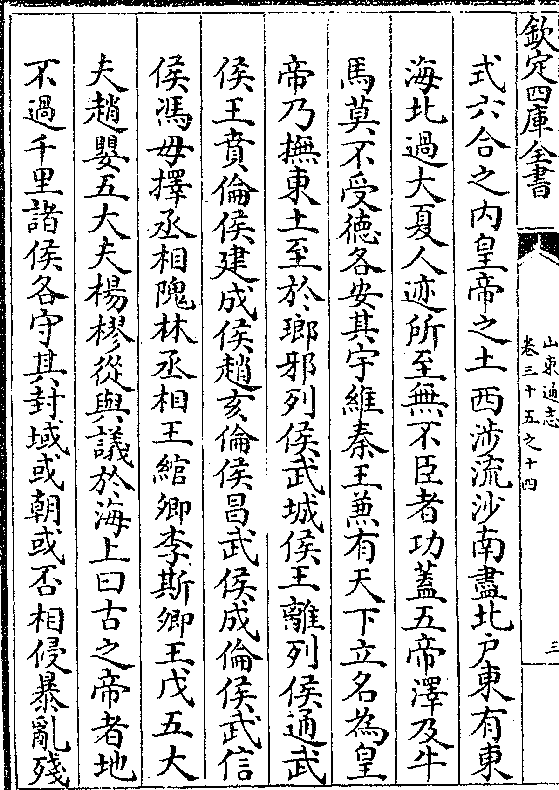 欽定四庫全書
山東通志
卷三十五之十四
三
式六合之内皇帝之土西涉流沙南盡北户東有東
海北過大夏人迹所至無不臣者功蓋五帝澤及牛
馬莫不受德各安其宇維秦王兼有天下立名為皇
帝乃撫東土至於瑯邪列侯武城侯王離列侯通武
侯王賁倫侯建成侯趙亥倫侯昌武侯成倫侯武信
侯馮毋擇丞相隗林丞相王綰卿李斯卿王戊五大
夫趙嬰五大夫楊樛從與議於海上曰古之帝者地
不過千里諸侯各守其封域或朝或否相侵暴亂殘